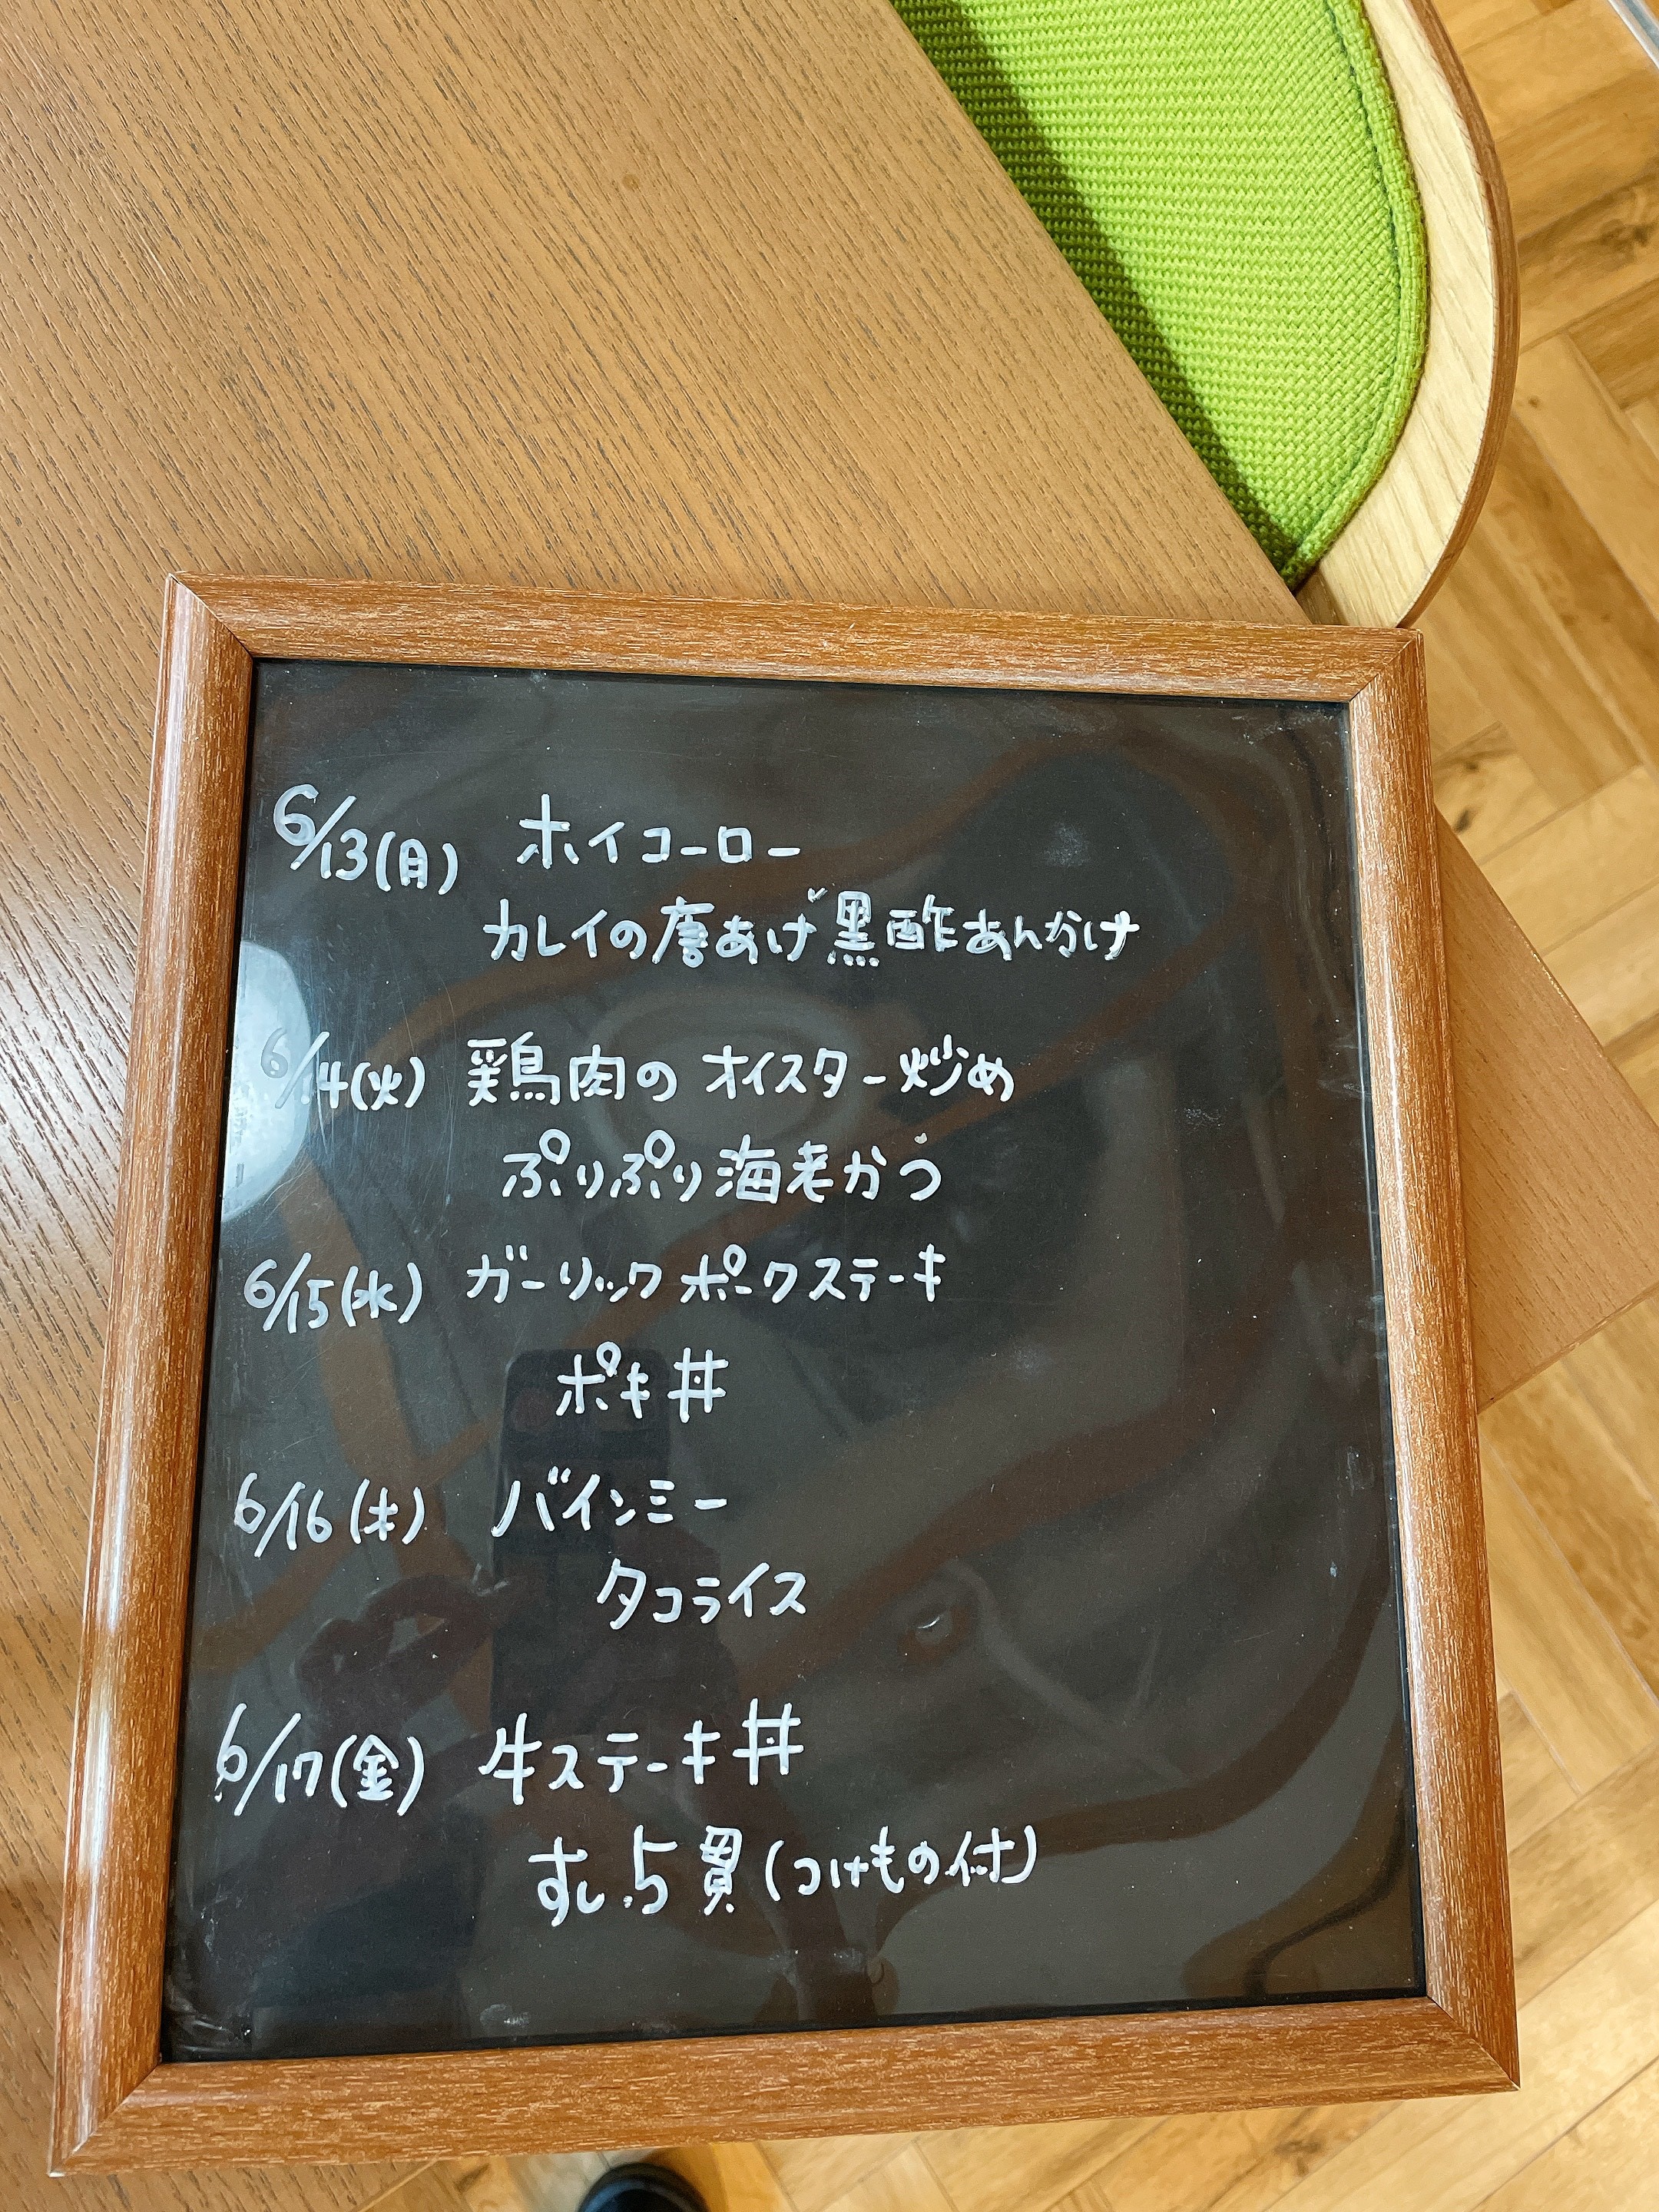 6/13(月) ホイコーロー
カレイの唐あげ 黒酢あんかけ
6/14(火) 鶏肉の オイスター炒め
ぷりぷり海老かつ
6/15(水) ガーリックポークステーキ
ポキ丼
6/16(木) バインミー
タコライス
6/17(金) 牛ステーキ丼
すし5貫(つけもの付)